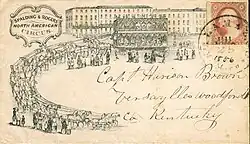 SPALDING & ROGERS
NORTH AMERICAN
CIRCUS
1856
Capt Hinson Brown
Woodford
Co Kentucky